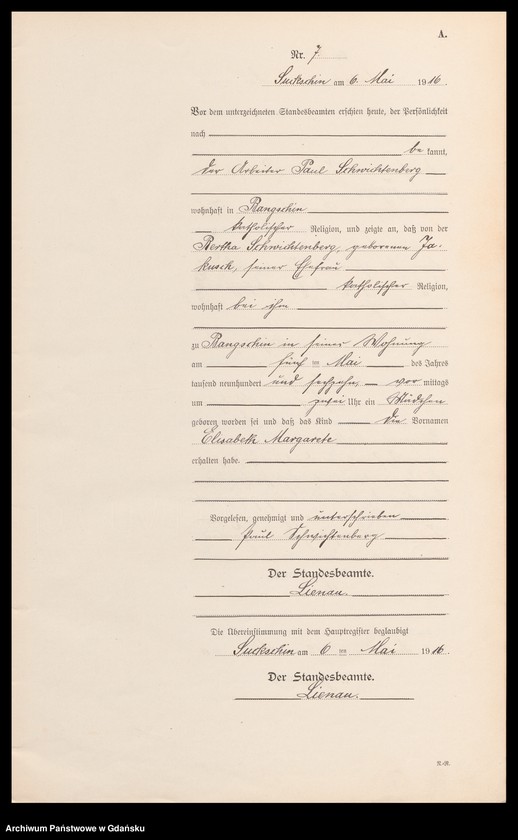 A.
Nr. 7.
Suckschin am 6. Mai 1916.
Vor dem unterzeichneten Standesbeamten erschien heute, der Persönlichkeit
nach
be kannt,
der Arbeiter Paul Schwichtenberg
wohnhaft in Rangschin
katholischer Religion, und zeigte an, daß von der
Bertha Schwichtenberg, geborenen Ja-
kusch, seiner Ehefrau
katholischer Religion,
wohnhaft bei ihm
zu Rangschin in seiner Wohnung
am fünf ten Mai des Jahres
tausend neunhundert und sechzehn, vor mittags
um zwei Uhr ein Mädchen
geboren worden sei und daß das Kind die Vornamen
Elisabeth Margarete
erhalten habe.
Vorgelesen, genehmigt und unterschrieben
Paul Schwichtenberg
Der Standesbeamte.
Lienau.
Die Übereinstimmung mit dem Hauptregister beglaubigt
Suckschin am 6 ten Mai 1916.
Der Standesbeamte.
Lienau.
Archiwum Państwowe w Gdańsku